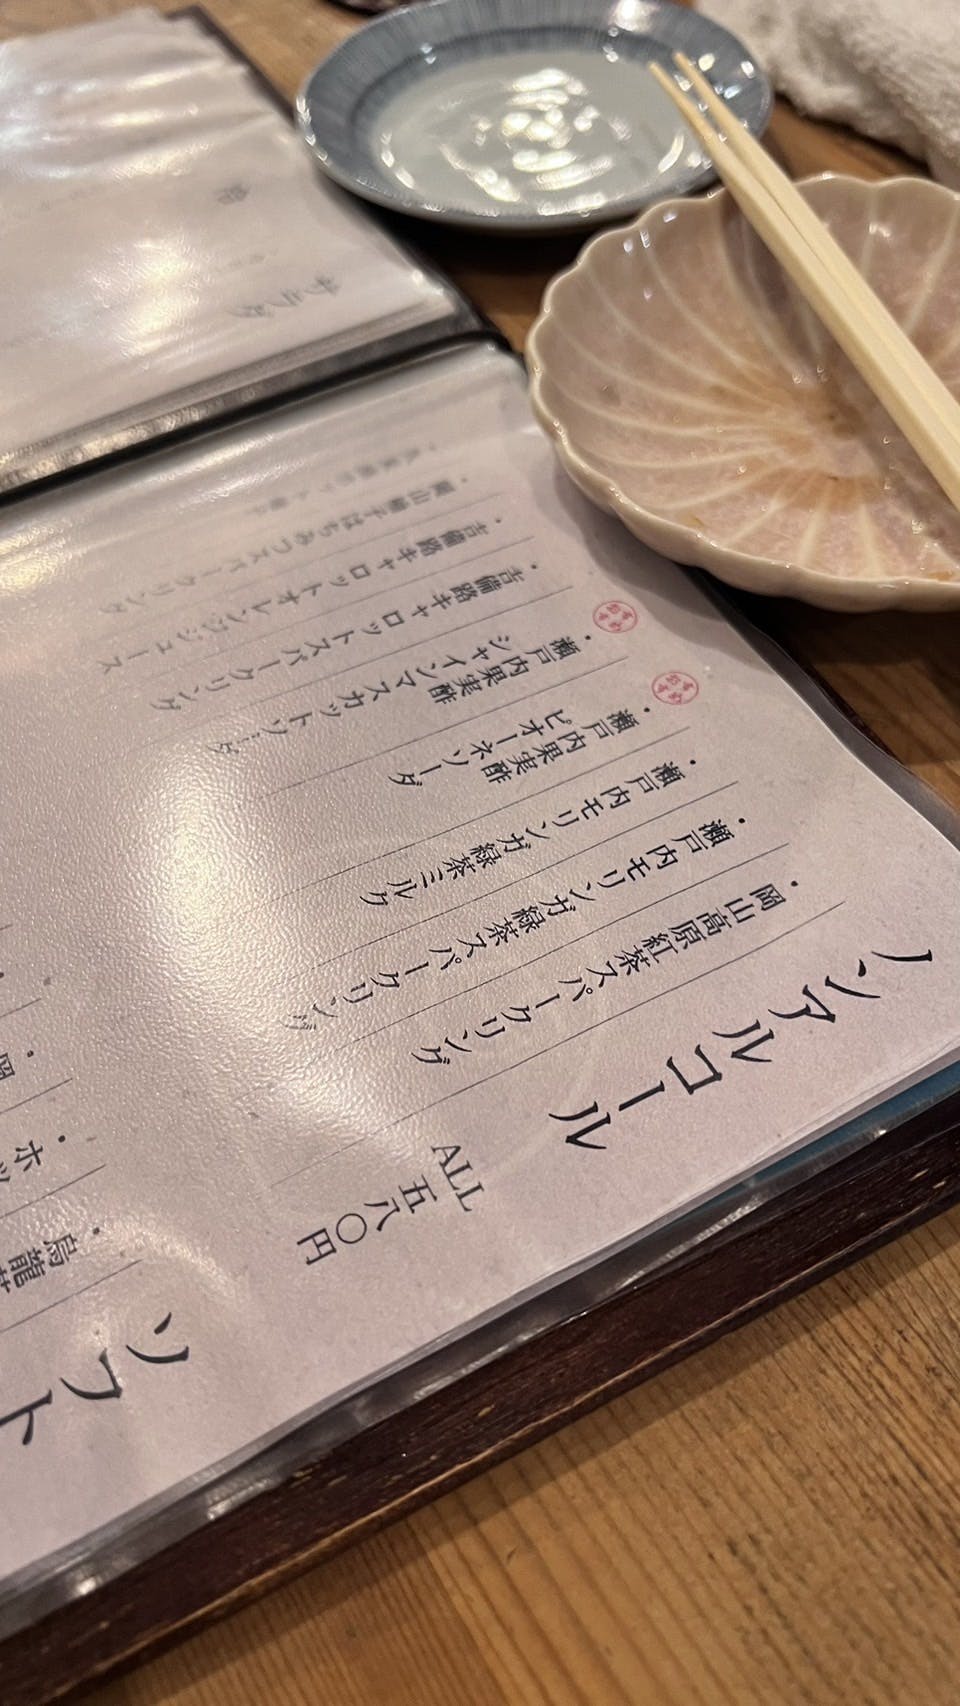 ノンアルコール
ALL 五八〇円
・岡山高原紅茶スパークリング
・瀬戸内モリンガ緑茶スパークリング
・瀬戸内モリンガ緑茶ミルク
・瀬戸内果実酢
ピオーネソーダ
・瀬戸内果実酢
シャインマスカットソーダ
・吉備路キャロットスパークリング
・吉備路キャロットオレンジジュース
・岡山柚子はちみつスパークリング
ソフト
・烏龍茶
・ホッ
・岡
サラダ